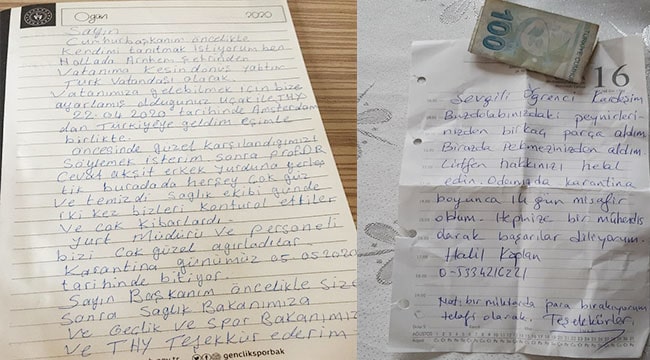 Ogün 2020
Sayın
Cumhurbaşkanım öncelikle
Kendimi tanıtmak istiyorum ben
Hollada Arnhem Şehrinden
Vatanıma Kesin dönüş yaptım
Türk Vatandaşı olarak.
Vatanımıza gelebilmek için bize
ayarlamış olduğunuz uçak ile THY
22.04.2020 tarihinde Amsterdam
dan Türkiyeye geldim eşimle
birlikte.
öncesinde güzel karşılandığımızı
Söylemek isterim sonra prof DR
Cevat akşit erkek yurduna yerleş
tik buradada herşey çok güz
ve temizdi sağlık ekibi günde
iki kez bizleri kontural ettiler
ve çok kibarlardı.
yurt Müdürü ve personeli
bizi çok güzel ağırladılar
Karantina günümüz 05.05.2020
tarihinde bitiyor.
Sayın Başkanım öncelikle size
Sonra Sağlık Bakanımıza
ve Gençlik ve Spor Bakanımıza
ve THY Teşekkür ederim
gencliksporbak
100
16
Sevgili Öğrenci Kardeşim
Buzdolabınızdaki peynirleri-
nizden birkaç parça aldım.
Birazda Pekmezinizden aldım.
Lütfen hakkınızı helal
edin. Odanızda karantina
boyunca 14 gün misafir
oldum. Hepinize bir mühendis
olarak başarılar diliyorum.
Halil Kaplan
0-5334216221
Not: bir miktarda para bırakıyorum
telafi olarak. Teşekkürler.
AĞUSTOS